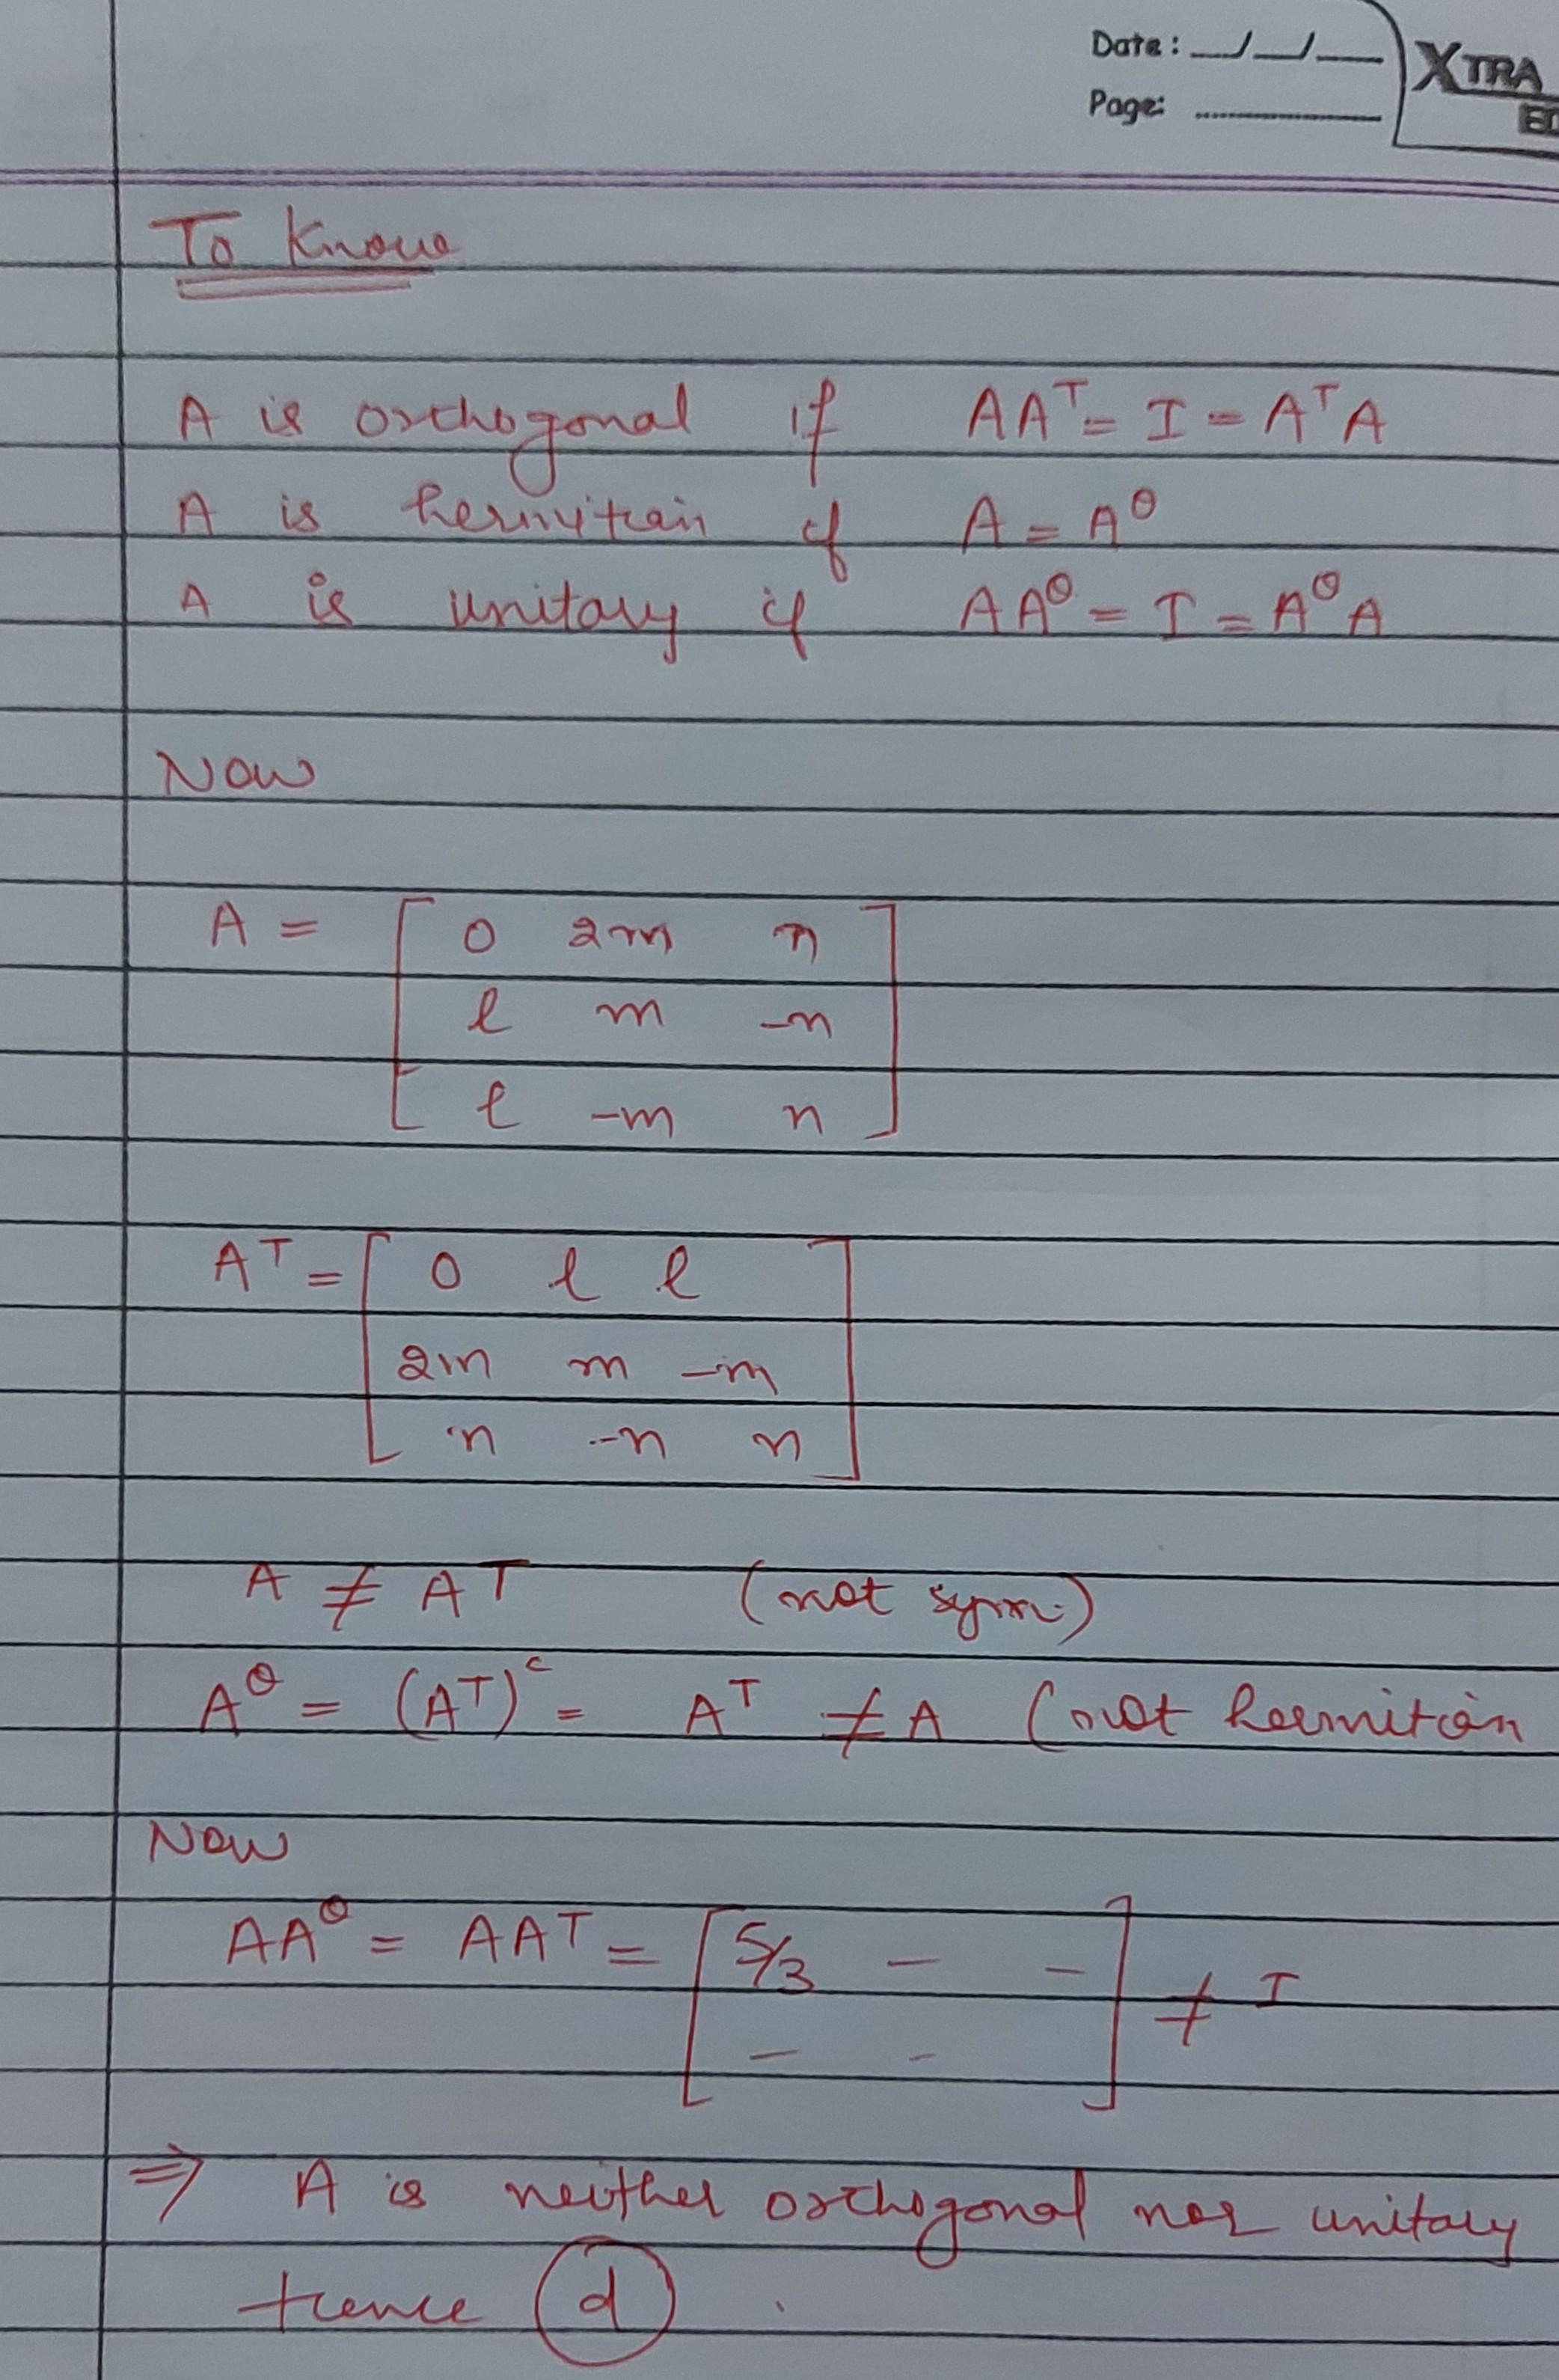 Date: __/__/__
Page: ________
XTRA
To Know
A is orthogonal if AAᵀ = I = AᵀA
A is hermitian if A = A^θ
A is unitary if AA^θ = I = A^θA
Now
A = [ 0 2m n
l m -n
l -m n ]
Aᵀ = [ 0 l l
2m m -m
n -n n ]
A ≠ Aᵀ (not sym.)
A^θ = (Aᵀ)ᶜ = Aᵀ ≠ A (not hermitian
Now
AA^θ = AAᵀ = [ 5/3 - -
- - ] ≠ I
⇒ A is neither orthogonal nor unitary
Hence (d) .